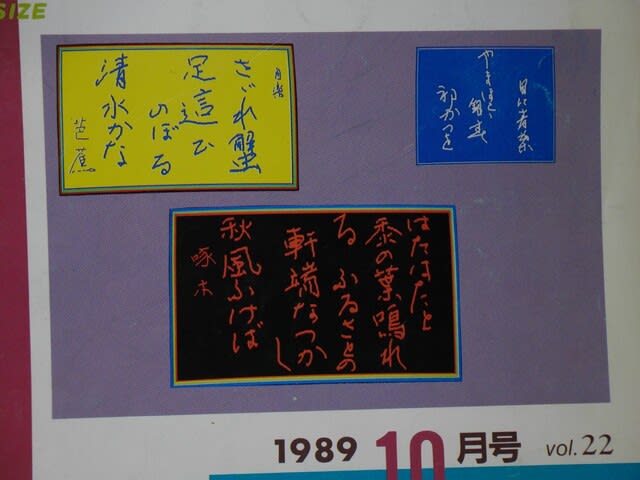 SIZE
さゞれ蟹
足這ひ
のぼる
清水かな
芭蕉
目に青葉
初がつを
はたはたと
黍の葉鳴れ
る ふるさとの
軒端なつか
し
秋風ふけば
啄木
1989 10月号 vol.22